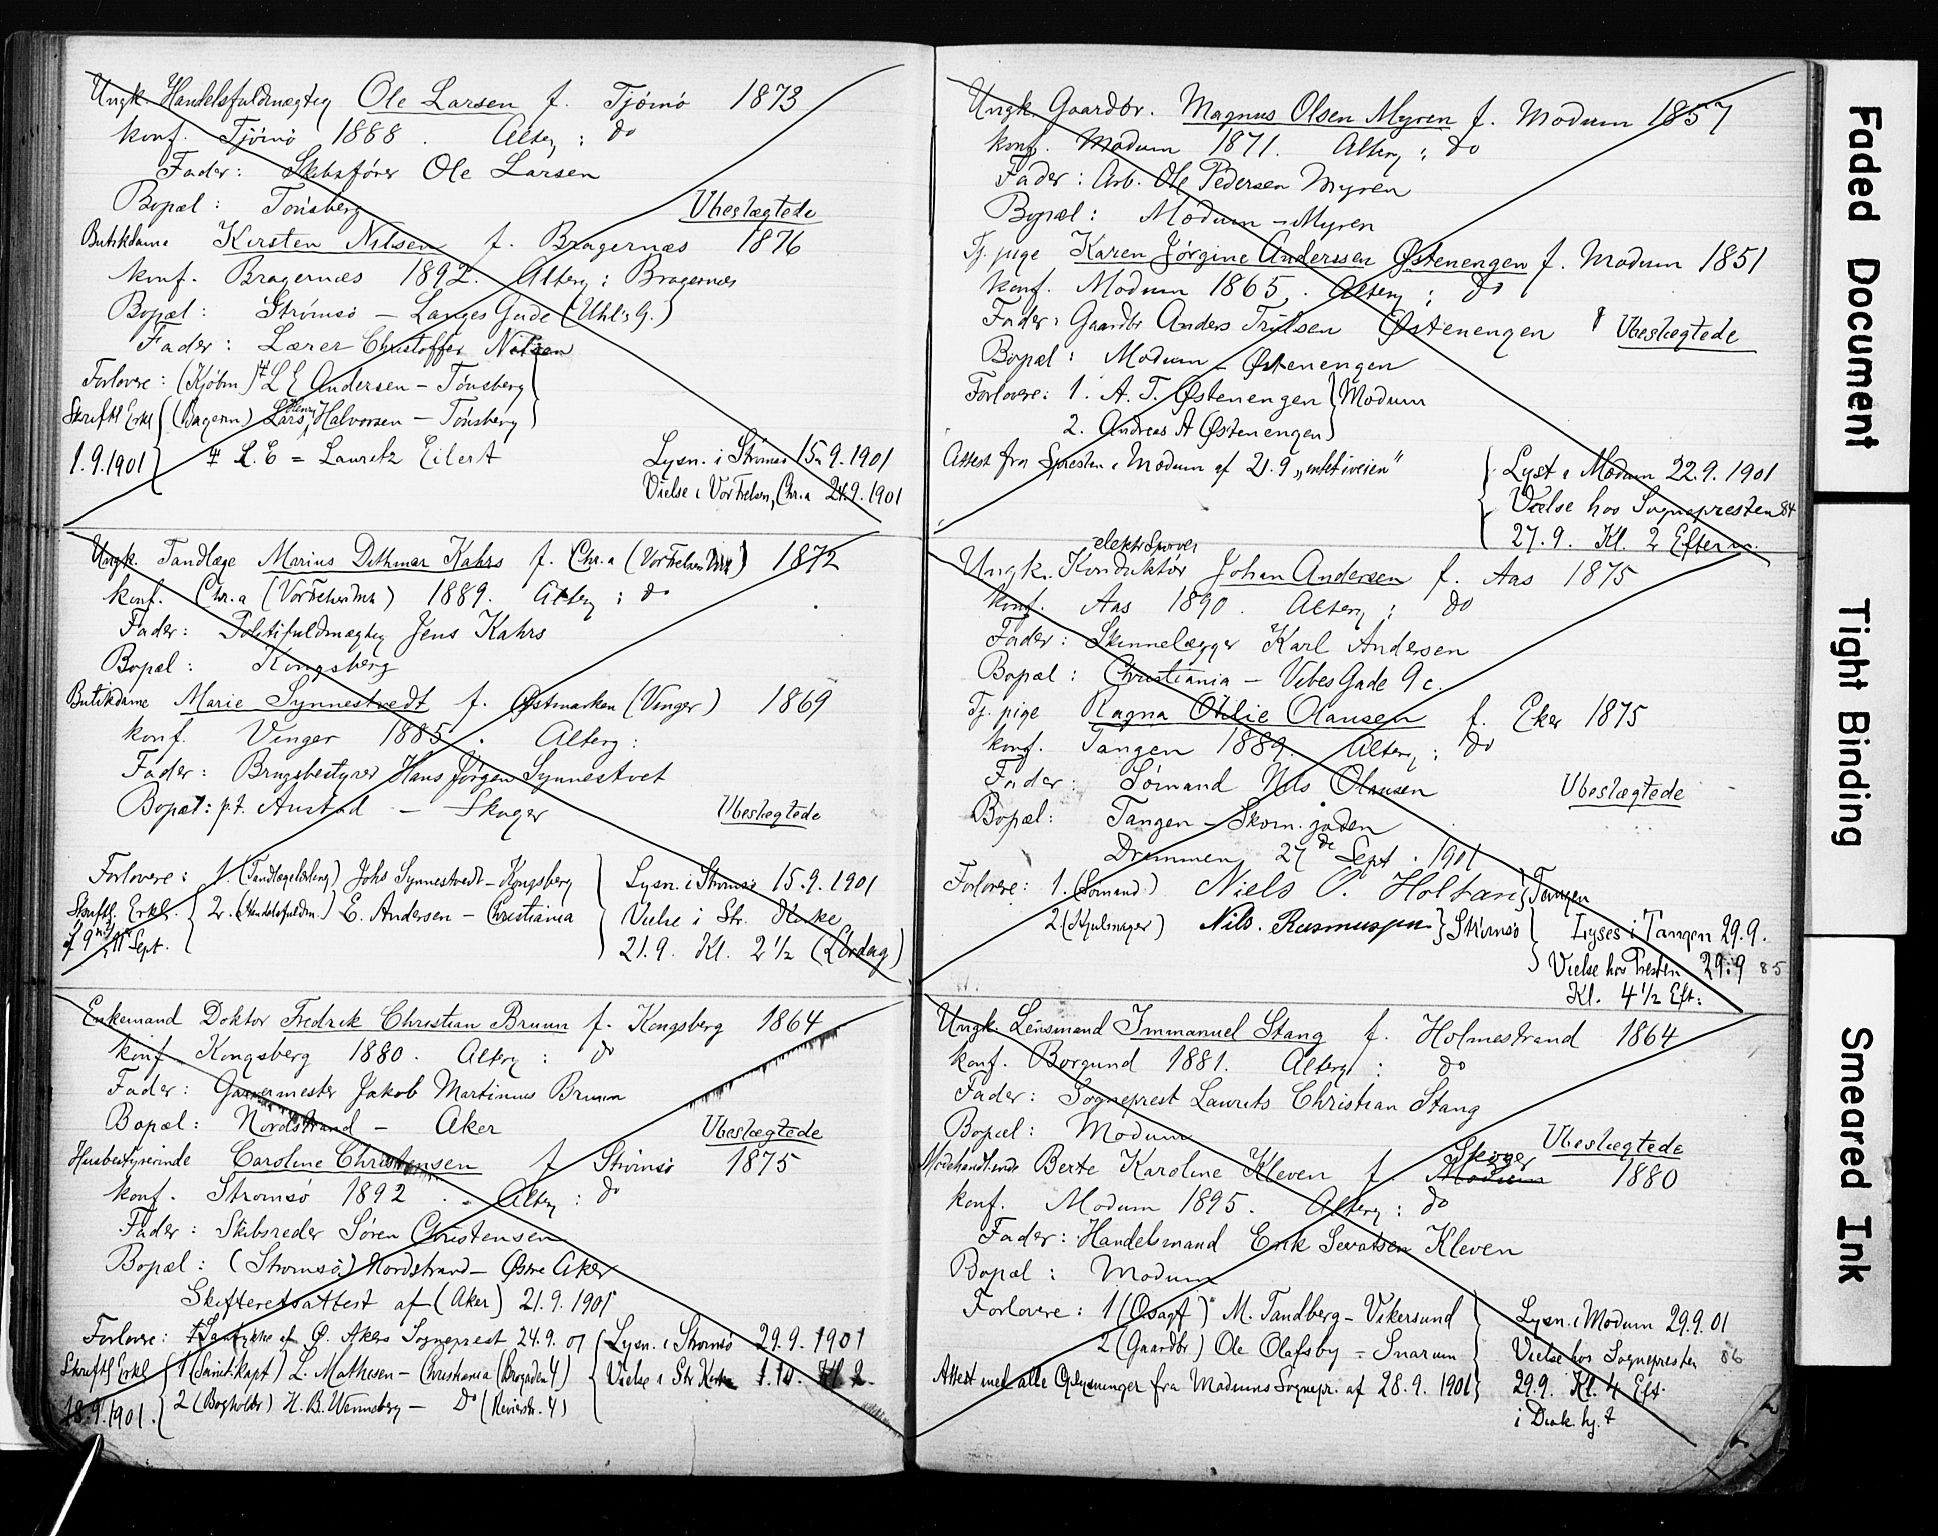 Ungk. Handelsfuldmægtig Ole Larsen f. Tjömö 1873
konf. Tjömö 1888. Alterg: do
Fader: Skibsfører Ole Larsen
Bopæl: Tönsberg
Ubeslægtede
Butikdame Kirsten Nilsen f. Bragernæs 1876
konf. Bragernæs 1892. Alterg: Bragernæs
Bopæl: Strömsö – Langes Gade (Uhl's G.)
Fader: Lærer Christoffer Nilsen
Forlovere: (Kjöbm) ‡ L E Andersen – Tönsberg
Skriftl Erkl (Bagerm) Lars Henry Halvorsen – Tönsberg
1.9.1901 ‡ L. E = Lauritz Eilert
Lysn. i Strömsö 15.9.1901
Vielse i Vor Frelsers, Chr.a 24.9.1901
Ungk. Tandlæge Marius Dithmar Kahrs f. Chr.a (Vor Frelsers Mh) 1872
konf. Chr.a (Vor Frelsers Mh) 1889. Alterg: do
Fader: Politifuldmægtig Jens Kahrs
Bopæl: Kongsberg
Butikdame Marie Synnestvedt f. Østmarken (Vinger) 1869
konf. Vinger 1885. Alterg:
Fader: Brugsbestyrer Hans Jörgen Synnestvet
Bopæl: p.t. Austad – Skoger
Ubeslægtede
Forlovere: 1. (Tandlægelærling) Johs Synnestvedt – Kongsberg
Skriftl. Erkl. 2. (Handelsfuldm.) E. Andersen – Christiania
f 9 11 Sept.
Lysn. i Strömsö 15.9.1901
Vielse i Str. Kirke
21.9. Kl. 2 1/2 (Lördag)
Enkemand Doktor Fredrik Christian Bruun f. Kongsberg 1864
konf. Kongsberg 1880. Alterg: do
Fader: Garvermester Jakob Martinius Bruun
Bopæl: Nordstrand – Aker
Ubeslægtede
Husbestyrerinde Caroline Christensen f Strömsö 1875
konf. Strömsö 1892. Alterg: do
Fader: Skibsreder Sören Christensen
Bopæl: (Strömsö) Nordstrand – Østre Aker
Skifteretsattest af (Aker) 21.9.1901
Forlovere: Samtykke af Ø. Akers Sogneprest 24.9.01
Skriftl Erkl 1 (Sanit. kapt) L. Mathesen – Christiania (Brogaden 4)
18.9.1901. 2 (Bogholder) H. B. Wenneberg – Do (Revierstr. 4)
Lysn. i Strömsö 29.9.1901
Vielse i Str Kirke 1.10. Kl 2.
Ungk Gaardbr. Magnus Olsen Myren f. Modum 1857
konf. Modum 1871. Alterg: do
Fader: Arb. Ole Pedersen Myren
Bopæl: Modum – Myren
Tj. pige Karen Jørgine Anderssen Østenengen f. Modum 1851
konf. Modum 1865. Alterg: do
Fader: Gaardbr Anders Trulsen Østenengen
Ubeslægtede
Bopæl: Modum – Østenengen
Forlovere: 1. A. T. Østenengen Modum
2. Andreas A Østenengen
Attest fra Spresten i Modum af 21.9 „intet iveien"
Lyst i Modum 22.9.1901
Vielse hos Sognepresten 84
27.9. Kl. 2 Efterm.
elektr Sporv.
Ungk. Konduktör Johan Andersen f. Aas 1875
konf. Aas 1890. Alterg: do
Fader: Skinnelægger Karl Andersen
Bopæl: Christiania – Vibes Gade 9 c.
Tj. pige Ragna Otilie Olausen f. Eker 1875
konf. Tangen 1889. Alterg: do
Fader: Sömand Nils Olausen
Ubeslægtede
Bopæl: Tangen – Skom. gaden
Drammen 27 de Sept. 1901
Forlovere: 1. (Sömand) Niels O. Holtan Tangen
2. (Hjulmager) Nils. Rasmussen Strömsö
Lyses i Tangen 29.9.
Vielse hos Presten 29.9 85
Kl. 4 1/2 Eft:
Ungk. Lensmand Immanuel Stang f. Holmestrand 1864
konf. Borgund 1881. Alterg: do
Fader: Sogneprest Laurits Christian Stang
Bopæl: Modum
Ubeslægtede
Modehandlerinde Berte Karoline Kleven f. Modum Skoger 1880
konf. Modum 1895. Alterg: do
Fader: Handelsmand Erik Sevatsen Kleven
Bopæl: Modum
Forlovere: 1 (O sagf) M. Tandberg – Vikersund
2 (Gaardbr) Ole Olafsby – Snarum
Attest med alle Oplysninger fra Modums Sognepr. af 28.9.1901
Lysn. i Modum 29.9.01
Vielse hos Sognepresten 86
29.9. Kl. 4 Eft.
i Drak. hj. t
Faded Document
Tight Binding
Smeared Ink